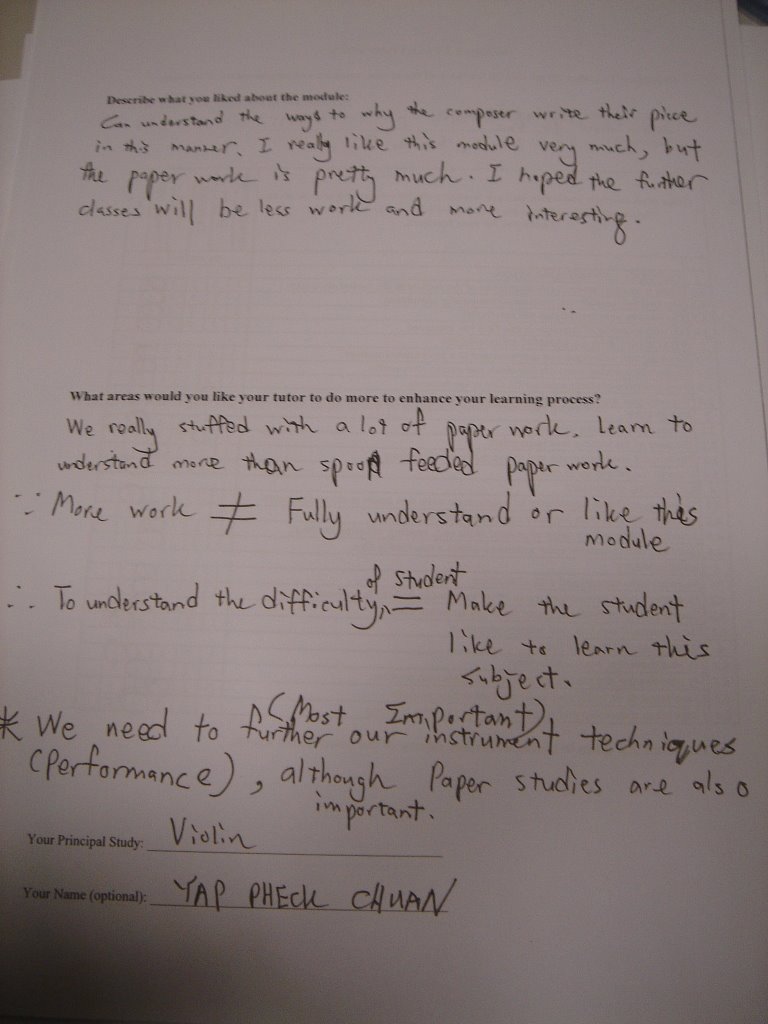 Describe what you liked about the module:
Can understand the ways to why the composer write their piece
in this manner. I really like this module very much, but
the paper work is pretty much. I hoped the further
classes will be less work and more interesting.
What areas would you like your tutor to do more to enhance your learning process?
We really stuffed with a lot of paper work. Learn to
understand more than spoon feeded paper work.
∵ More work ≠ Fully understand or like this
module
of student
∴ To understand the difficulty = Make the student
like to learn this
subject.
(Most Important)
* We need to further our instrument techniques
(Performance), although Paper studies are also
important.
Your Principal Study: Violin
Your Name (optional): YAP PHECK CHUAN